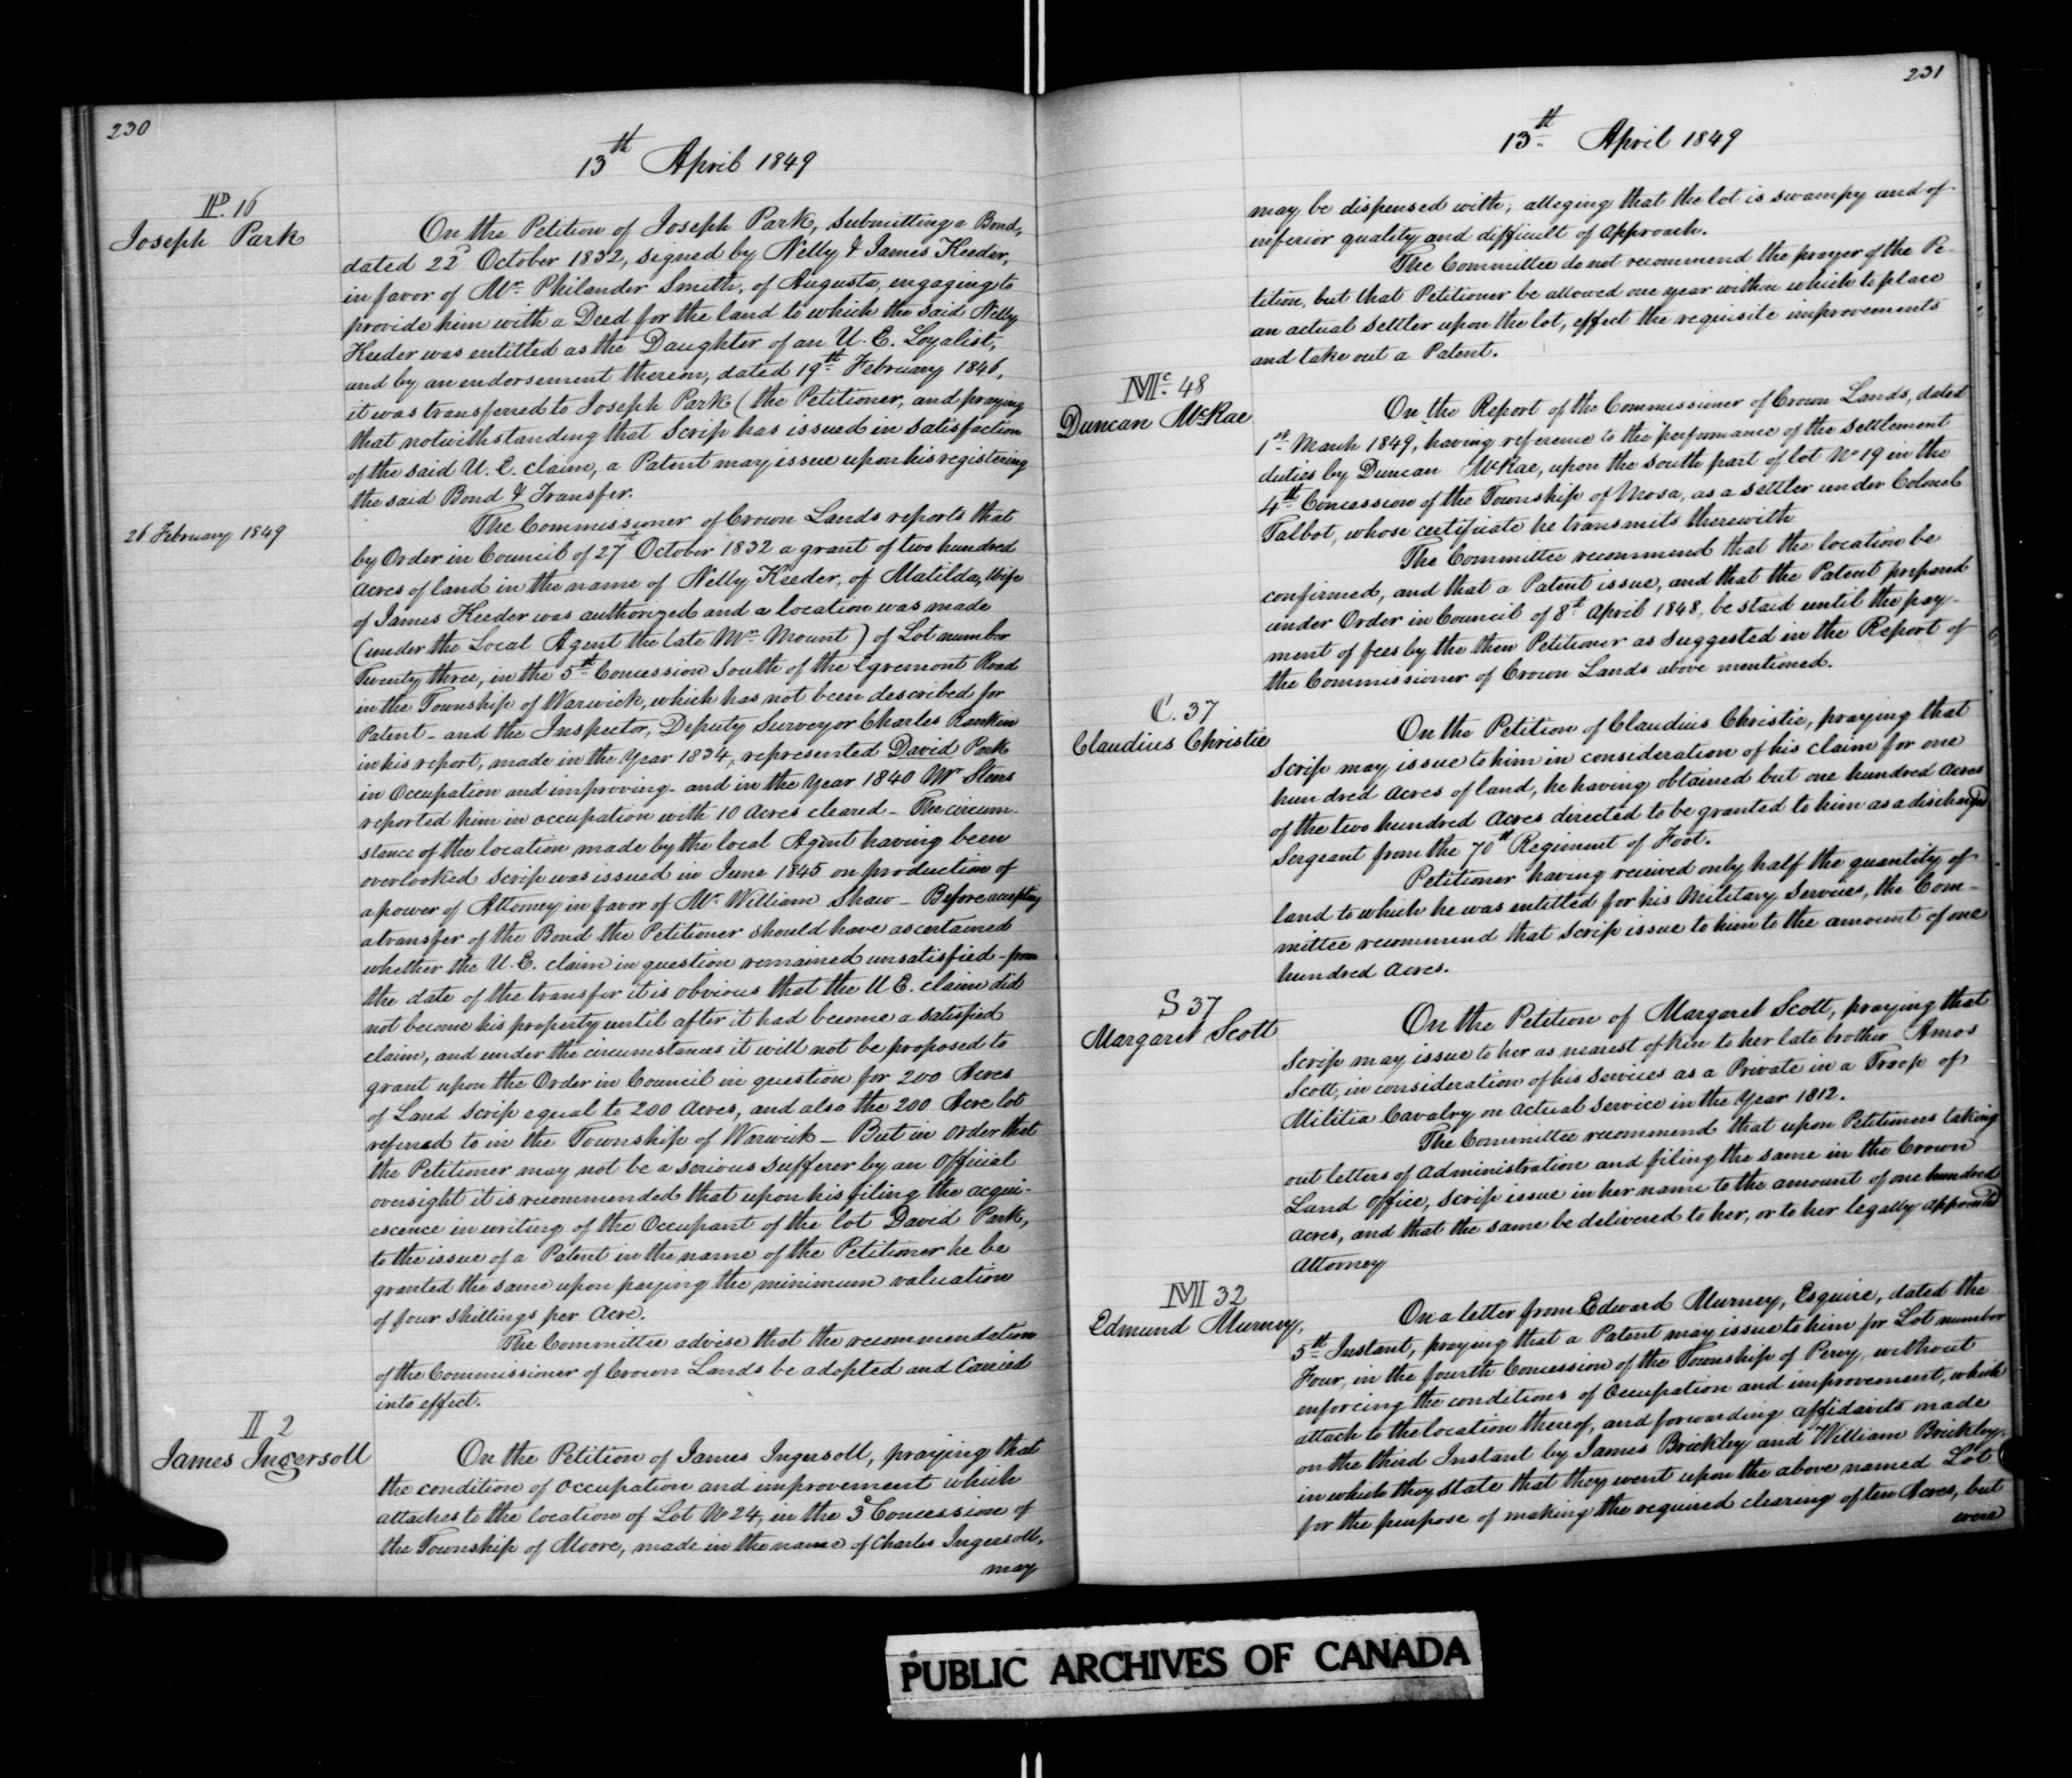 230
13th April 1849
P. 16
Joseph Park
On the Petition of Joseph Park, submitting a Bond,
dated 22d October 1832, signed by Nelly & James Keeder,
in favor of Mr. Philander Smith, of Augusta, engaging to
provide him with a Deed for the land to which the said Nelly
Keeder was entitled as the Daughter of an U. E. Loyalist,
and by an endorsement thereon, dated 19th February 1846,
it was transferred to Joseph Park (the Petitioner, and praying
that notwithstanding that Scrip has issued in satisfaction
of the said U. E. claim, a Patent may issue upon his registering
the said Bond & Transfer.
26 February 1849
The Commissioner of Crown Lands reports that
by Order in Council of 27th October 1832 a grant of two hundred
acres of land in the name of Nelly Keeder, of Matilda, Wife
of James Keeder was authorized and a location was made
(under the Local Agent the late Mr. Mount) of Lot number
Twenty three, in the 5th Concession South of the Egremont Road
in the Township of Warwick, which has not been described for
Patent - and the Inspector, Deputy Surveyor Charles Rankin
in his report, made in the Year 1834, represented David Park
in Occupation and improving - and in the Year 1840 Mr
reported him in occupation with 10 Acres cleared - The circum-
stance of the location made by the local Agent having been
overlooked scrip was issued in June 1845 on production of
a power of Attorney in favor of Mr. William Shaw - Before accepting
a transfer of the Bond the Petitioner should have ascertained
whether the U. E. claim in question remained unsatisfied - from
the date of the transfer it is obvious that the U E. claim did
not become his property until after it had become a satisfied
claim, and under the circumstances it will not be proposed to
grant upon the Order in Council in question for 200 Acres
of Land scrip equal to 200 acres, and also the 200 Acre lot
referred to in the Township of Warwick - But in order that
the Petitioner may not be a serious sufferer by an Official
oversight it is recommended that upon his filing the acqui-
escence in writing of the Occupant of the lot David Park,
to the issue of a Patent in the name of the Petitioner he be
granted the same upon paying the minimum valuation
of four shillings per Acre.
The Committee advise that the recommendation
of the Commissioner of Crown Lands be adopted and Carried
into effect.
I 2
James Ingersoll
On the Petition of James Ingersoll, praying that
the condition of occupation and improvement which
attaches to the location of Lot No 24, in the 3d Concession of
the Township of Moore, made in the name of Charles Ingersoll,
may
231
13th April 1849
may be dispensed with; alleging that the lot is swampy and of
inferior quality and difficult of approach.
The Committee do not recommend the prayer of the Pe-
tition, but that Petitioner be allowed one year within which to place
an actual settler upon the lot, effect the requisite improvements
and take out a Patent.
Mc. 48
Duncan McRae
On the Report of the Commissioner of Crown Lands, dated
1st March 1849, having reference to the performance of the settlement
duties by Duncan McRae, upon the south part of lot No 19 in the
4th Concession of the Township of Mosa, as a settler under Colonel
Talbot, whose certificate he transmits therewith
The Committee recommend that the location be
confirmed, and that a Patent issue, and that the Patent prepared
under Order in Council of 8th April 1848, be staid until the pay-
ment of fees by the then Petitioner as suggested in the Report of
the Commissioner of Crown Lands above mentioned.
C. 37
Claudius Christie
On the Petition of Claudius Christie, praying that
Scrip may issue to him in consideration of his claim for one
hundred acres of land, he having obtained but one hundred acres
of the two hundred Acres directed to be granted to him as a discharged
Sergeant from the 70th Regiment of Foot.
Petitioner having received only half the quantity of
land to which he was entitled for his Military Services, the Com-
mittee recommend that scrip issue to him to the amount of one
hundred acres.
S 37
Margaret Scott
On the Petition of Margaret Scott, praying that
Scrip may issue to her as nearest of kin to her late brother Amos
Scott, in consideration of his services as a Private in a Troop of
Militia Cavalry on actual service in the Year 1812.
The Committee recommend that upon Petitioners taking
out letters of administration and filing the same in the Crown
Land office, scrip issue in her name to the amount of one hundred
acres, and that the same be delivered to her, or to her legally appointed
Attorney
M 32
Edmund Murney,
On a letter from Edward Murney, Esquire, dated the
5th Instant, praying that a Patent may issue to him for Lot number
Four, in the fourth Concession of the Township of Percy, without
enforcing the conditions of Occupation and improvement, which
attach to the location thereof, and forwarding affidavits made
on the third Instant by James Brickley and William Brickley,
in which they state that they went upon the above named Lot
for the purpose of making the required clearing of ten Acres, but
were
PUBLIC ARCHIVES OF CANADA